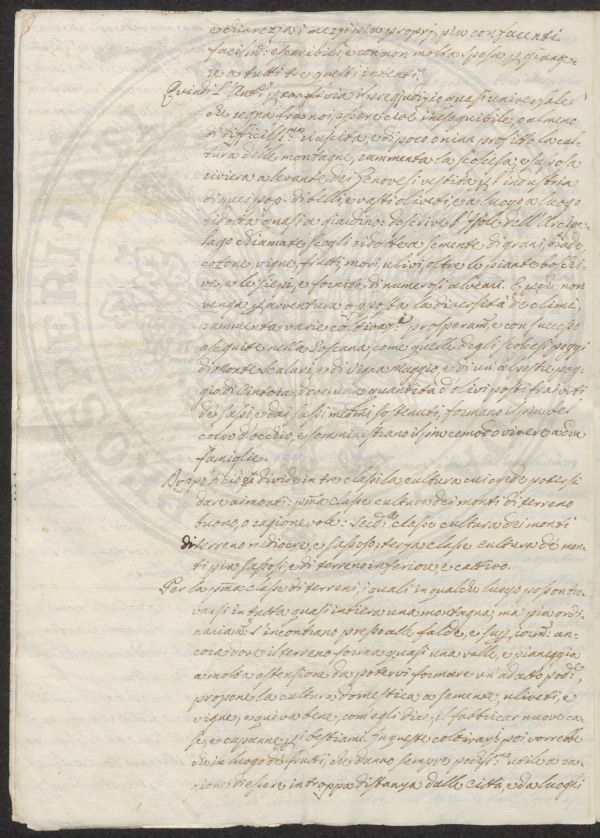 e chiarezza i mezzi più proprj, più confacenti
facili, ed eseguibili, e con non molta spesa
re a tutti tre questi intenti.
Quindi l'Aut.e per tor via il pregiudizio quasi universale
che regna fra noi, essere cioè ineseguibile, o almeno
di difficiliss.ma riuscita, e di poco o niun profitto la cul-
tura delle montagne, rammenta la scoscesa, e sassosa
riviera a levante dei Genovesi vestita per l'industria
di quei pop. di belli, e vasti oliveti, e a luogo a luogo
ridotta quasi a giardino: descrive l'Isole dell'Arcipe-
lago chiamate scogli ridotte a semente di grani, biade,
cotone, vigne, frutti, mori, ulivi, oltre le piante boschi-
ve, e le siepi, e fornite di numerosi alveari. E perché non
venga per avventura opposta la diversità de climi,
rammenta varie coltivaz.i prosperam.e, e con successo
eseguite nella Toscana, come quelle degli scoscesi poggi
di Monte Scalari, e di Vigna Maggio, e di un alpestre pog-
gio di Cintoia, dove una quantità d'olivi posti fra i voti
de sassi, e dai sassi medmi sostenuti, formano il più bel
colpo d'occhio, e somministrano il più comodo vivere a due
famiglie.
Dopo di ciò divide in tre classi la cultura cui crede potersi
dare ai monti: pma classe cultura dei monti di terreno
buono, o ragionevole: secda classe cultura dei monti
di terreno mediocre, e sassoso; terza classe cultura de mon-
ti più sassosi, e di terreno inferiore, e cattivo.
Per la pma classe di terreni, i quali in qualche luogo posson tro-
varsi in tutta quasi intiera una montagna, ma più ordi-
nariam.e s'incontrano presso alle falde, e an-
cora dove il terreno forma quasi una valle, e pianeggia
a molta estensione da potervi formare un adatto pod.e,
propone la cultura domestica a semente, uliveti, e
vigne, e qui va bene, com'egli dice, il fabbricar nuove ca-
se, e capanne per i bestiami. In queste coltivaz.i poi vorrebbe
che in luogo de frutti, che danno sempre pochiss.mo utile a ca-
gione di essere in troppa distanza dalle città, e da luoghi